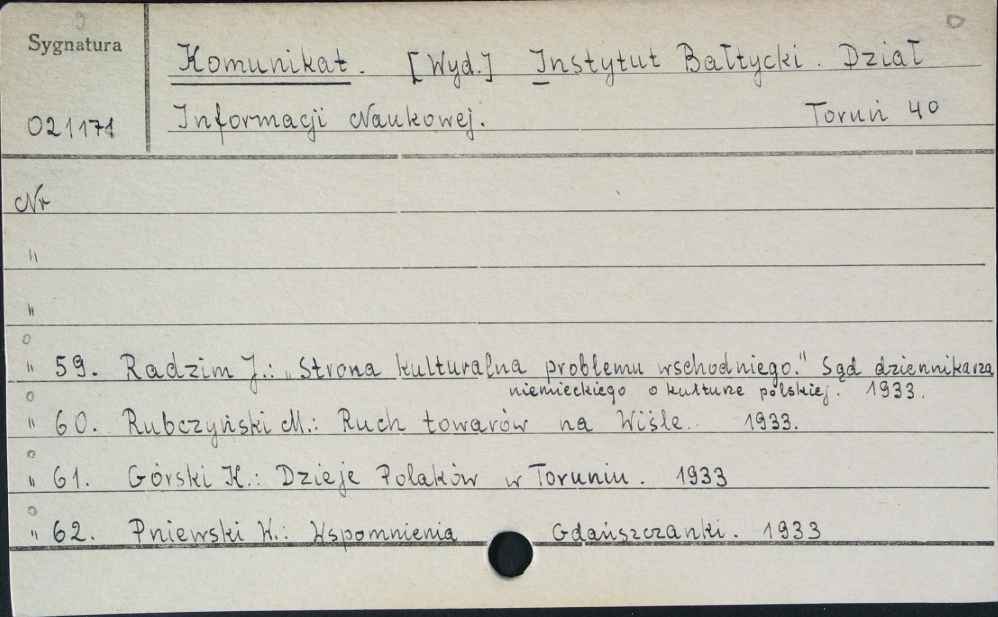 Sygnatura
Komunikat. [Wyd.] Instytut Bałtycki. Dział
021171
Informacji Naukowej. Toruń 40
Nr
"
"
" 59. Radzim J.: "Strona kulturalna problemu wschodniego." Sąd dziennikarza
niemieckiego o kulturze polskiej. 1933.
" 60. Rubczyński M.: Ruch towarów na Wiśle. 1933.
" 61. Górski K.: Dzieje Polaków w Toruniu. 1933
" 62. Pniewski W.: Wspomnienia Gdańszczanki. 1933